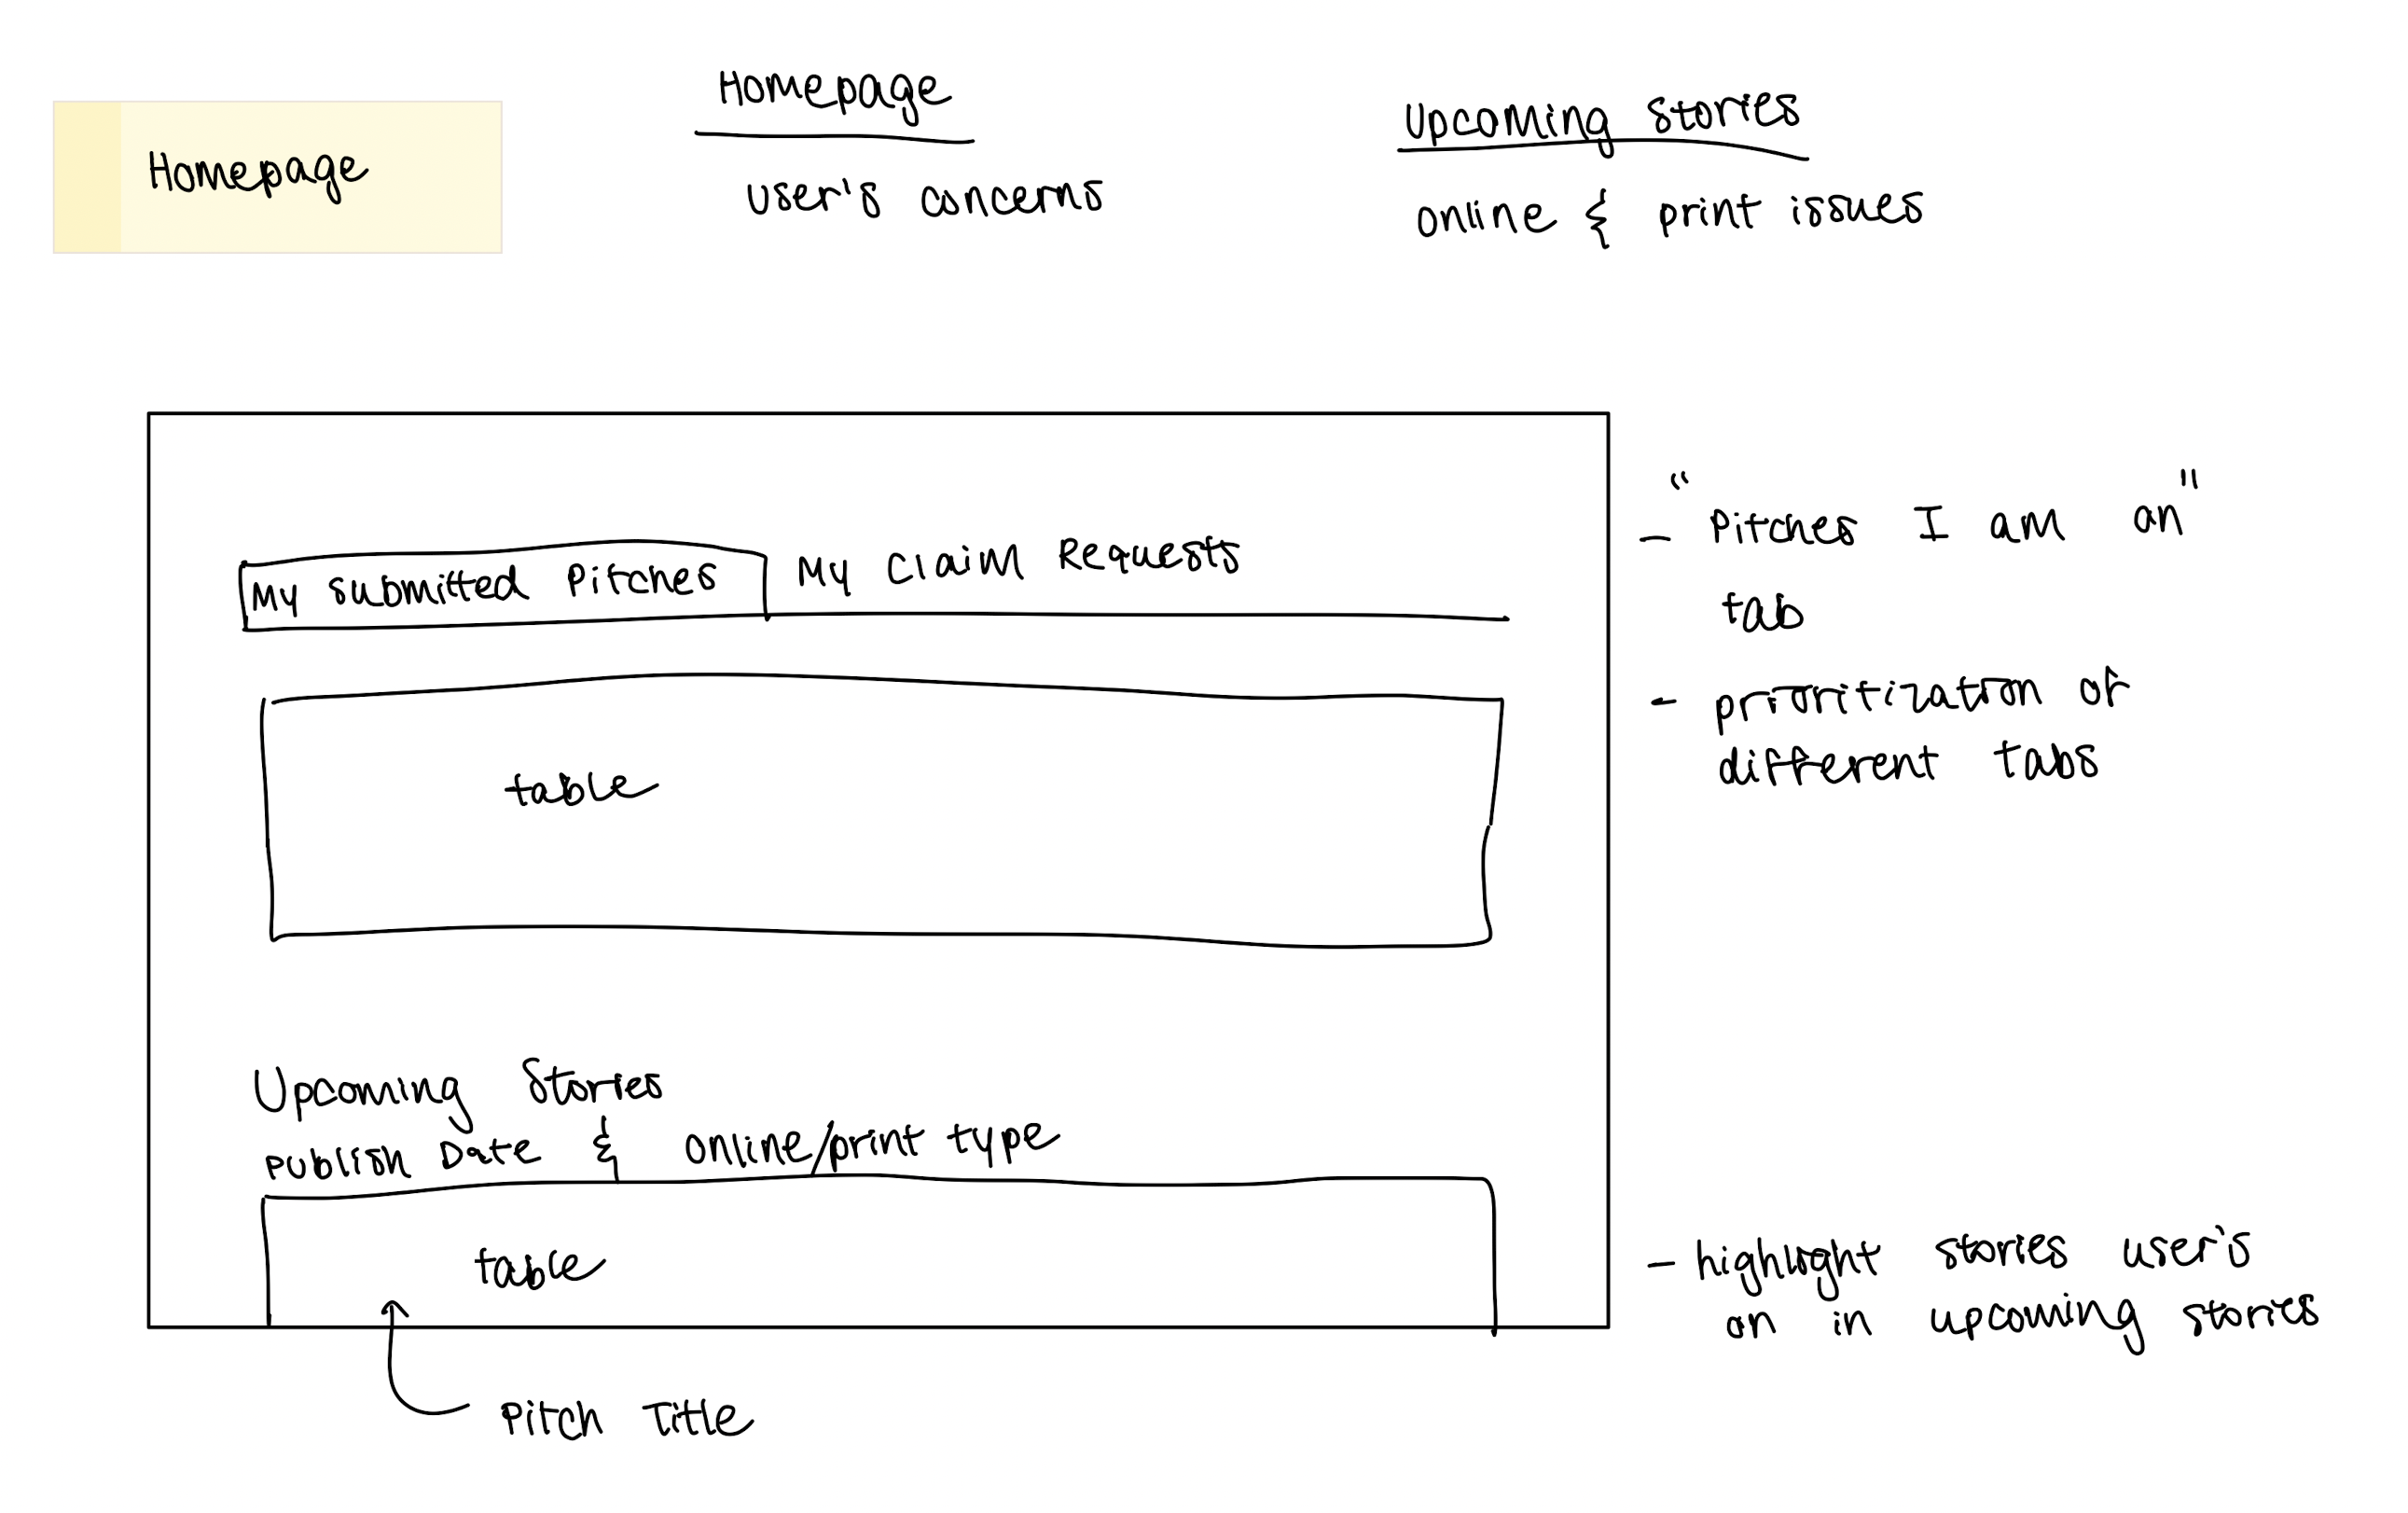 Homepage
Homepage
user's concerns
Upcoming Stories
online & print issues
My submitted Pitches
My Claim Requests
table
Upcoming Stories
publish Date & online/print type
table
Pitch Title
- "Pitches I am on"
tab
- prioritization of
different tabs
- highlight stories user's
on in upcoming stories